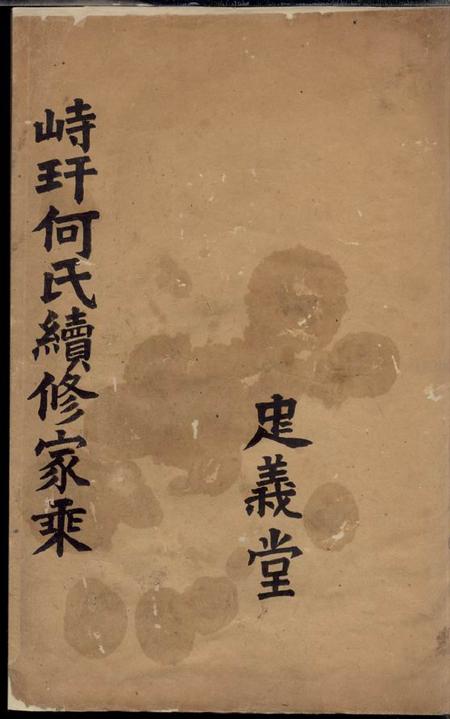 峙玕何氏續修家乘
史義堂